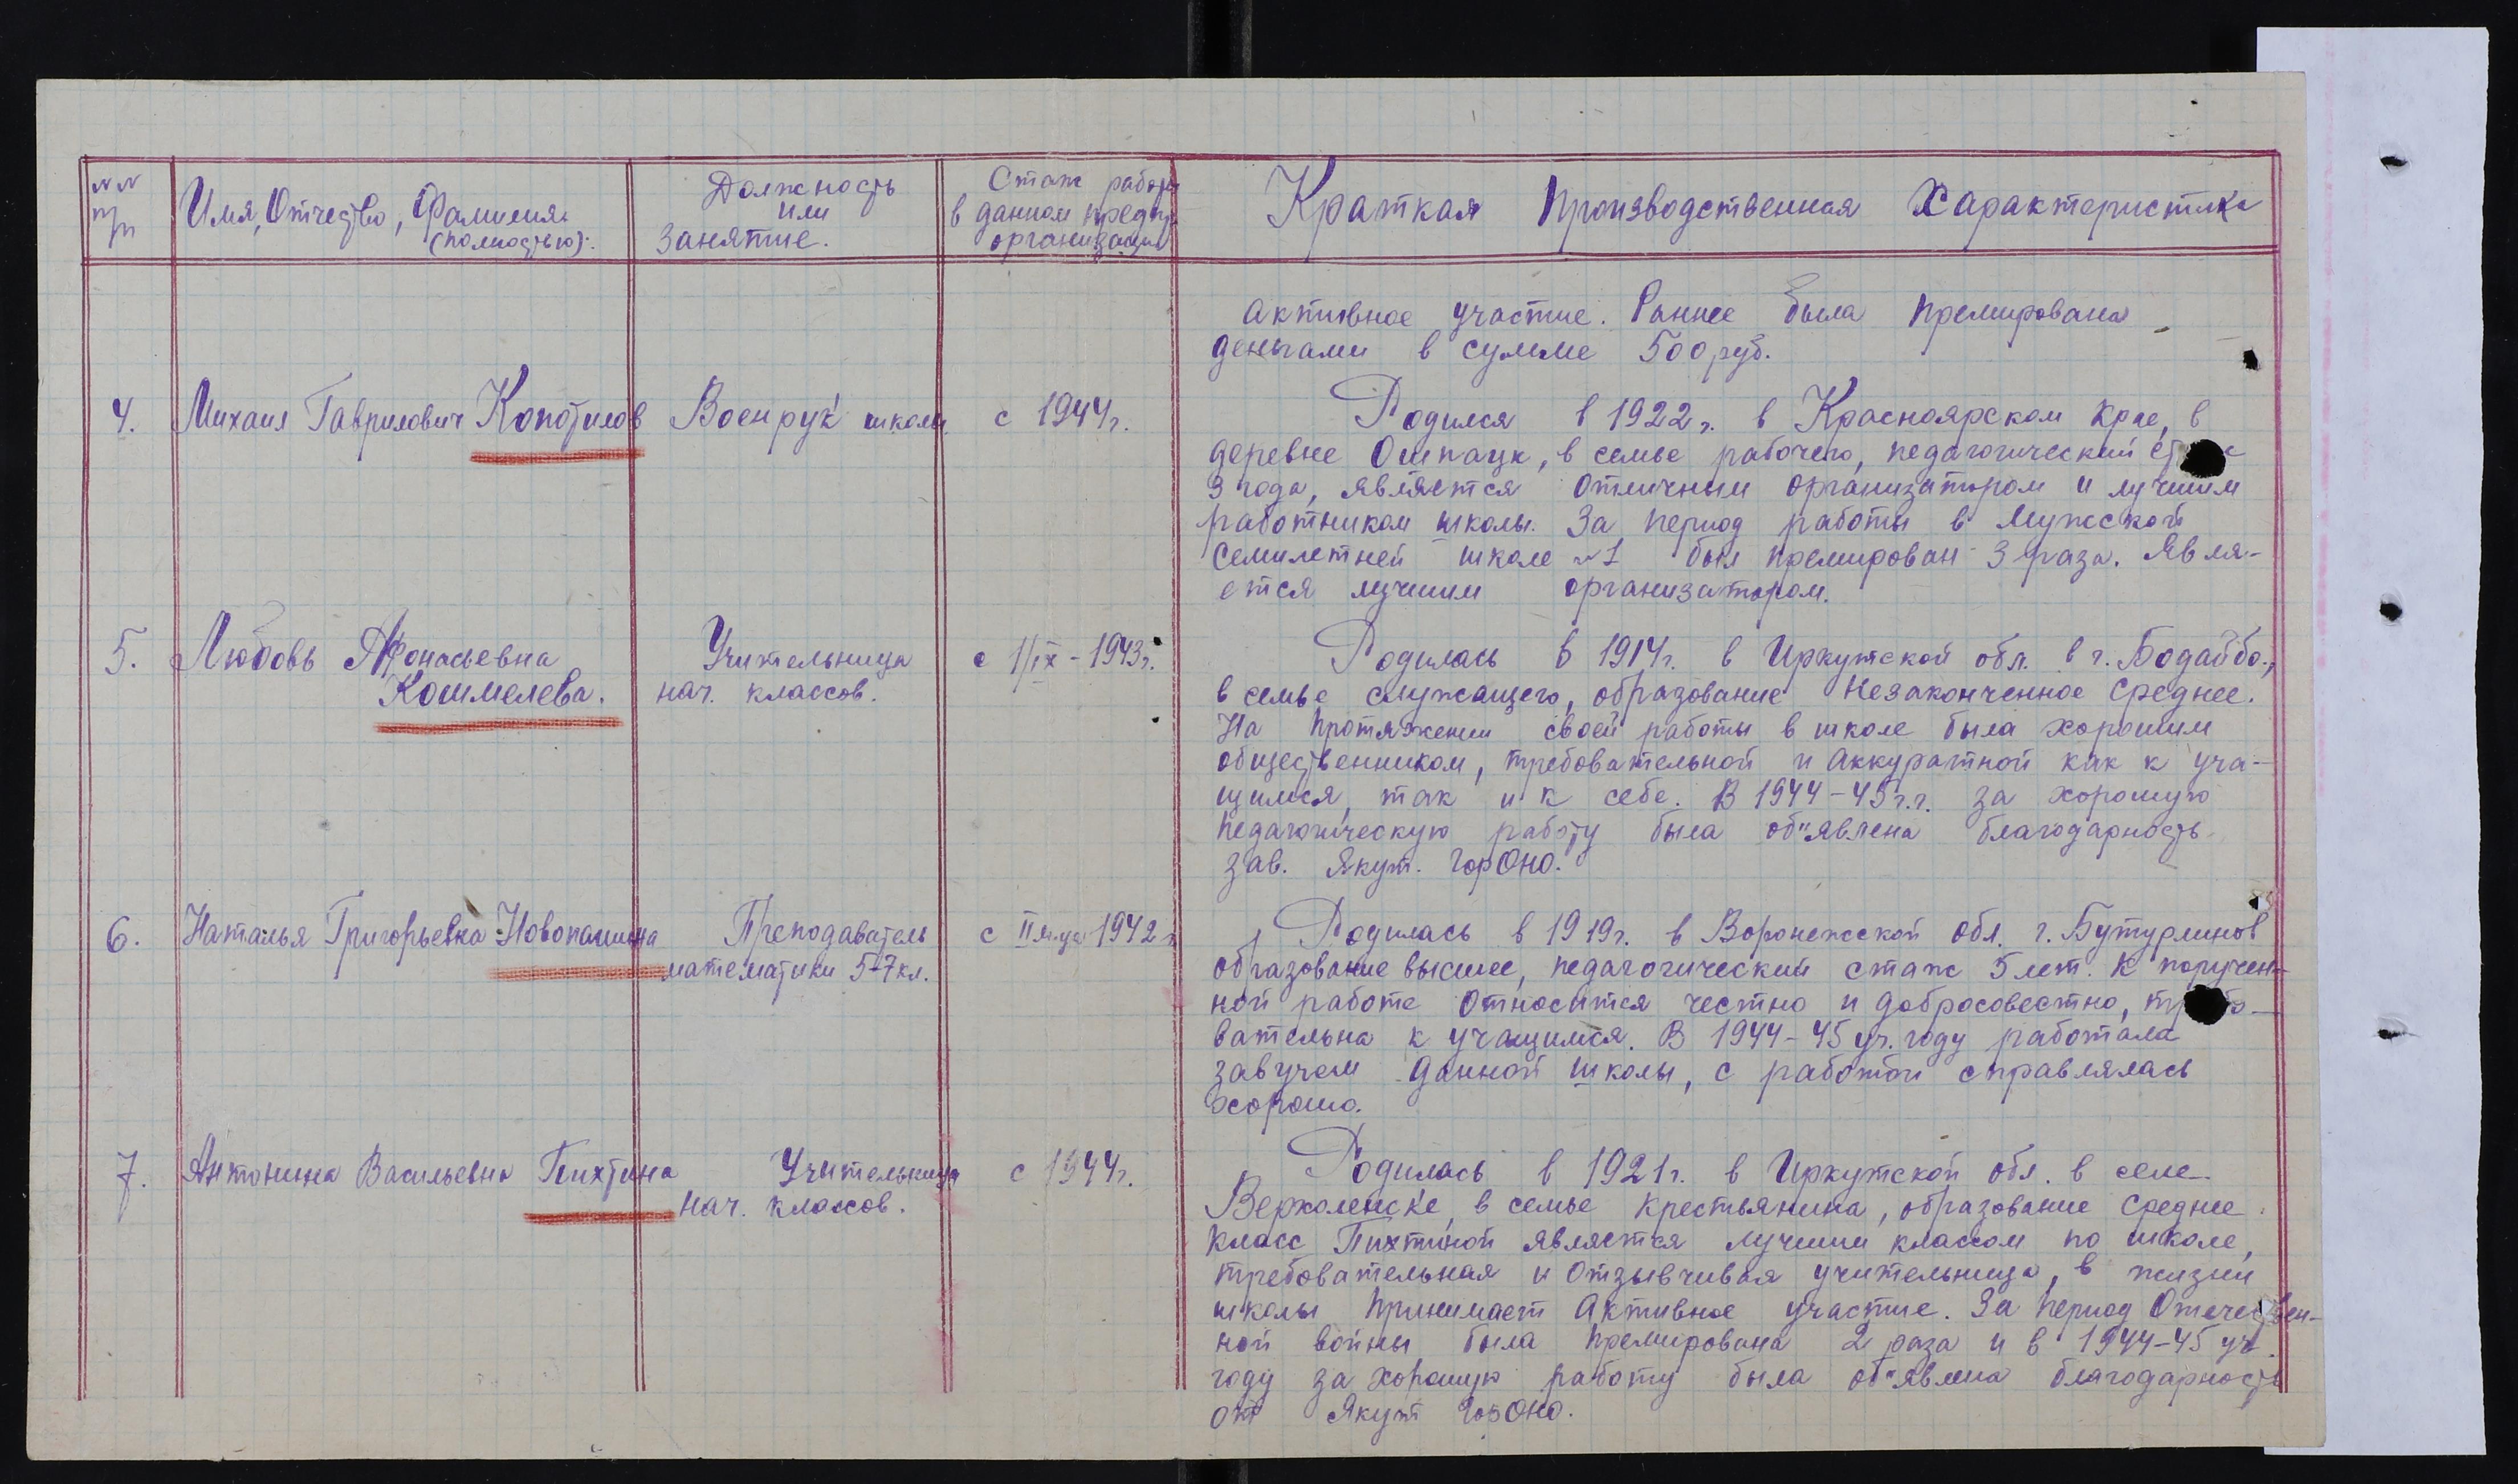 №№ п/п
Имя, Отчество, Фамилия (полностью).
Должность или занятие.
Стаж работы в данном предпр. организации
Краткая производственная характеристика
активное участие. Раннее была премирована
деньгами в сумме 500 руб.
4. Михаил Гаврилович Копотилов
Военрук школы
с 1944 г.
Родился в 1922 г. в Красноярском крае, в
деревне в семье рабочего, педагогический
3 года, является отличным организатором и лучшим
работником школы. За период работы в Мужской
семилетней школе №1 был премирован 3 раза. Явля-
ется лучшим организатором.
5. Любовь Афонасьевна
Кошмелева.
Учительница
нач. классов.
с 1/IX - 1943 г.
Родилась в 1914 г. в Иркутской обл. в г. Бодайбо,
в семье служащего, образование незаконченное среднее.
На протяжении своей работы в школе была хорошим
общественником, требовательной и аккуратной как к уча-
щимся, так и к себе. В 1944-45 г.г. за хорошую
педагогическую работу была об"явлена благодарность
зав. Якут. ГорОно.
6. Наталья Григорьевна Новопашина
Преподаватель
математики 5-7 кл.
с 1942 г.
Родилась в 1919 г. в Воронежской обл. г. Бутурлинов
образование высшее, педагогический стаж 5 лет. К поручен-
ной работе относится честно и добросовестно,
вательна к учащимся. В 1944-45 уч. году работала
завучем данной школы, с работой справлялась
хорошо.
7. Антонина Васильевна Пихтина
Учительница
нач. классов.
с 1944 г.
Родилась в 1921 г. в Иркутской обл. в селе
Верхоленске, в семье крестьянина, образование среднее.
Класс Пихтиной является лучшим классом по школе,
требовательная и отзывчивая учительница, в жизни
школы принимает активное участие. За период Отечествен-
ной войны была премирована 2 раза и в 1944-45 уч.
году за хорошую работу была об"явлена благодарность
от Якут ГорОно.